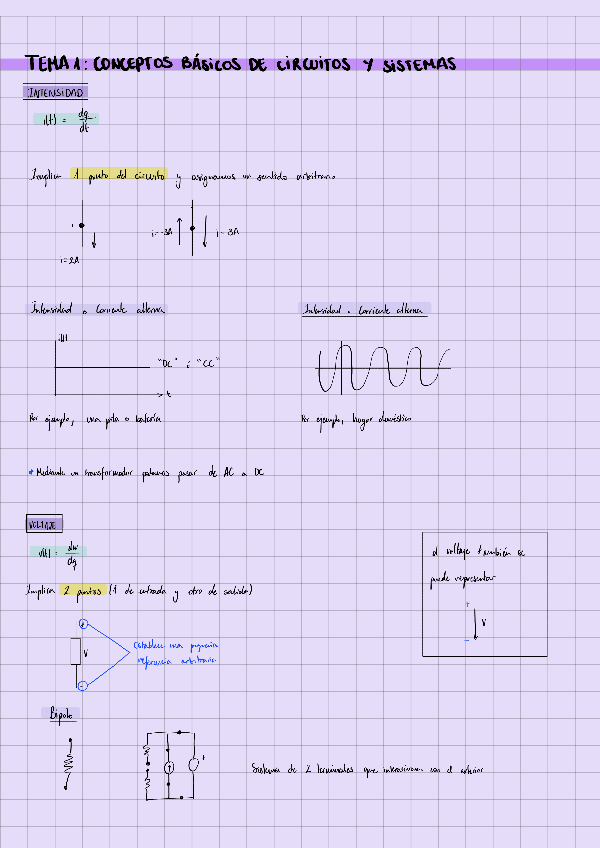 TEMA 1: CONCEPTOS BÁSICOS DE CIRCUITOS Y SISTEMAS
INTENSIDAD
i(t) = dq/dt
Implica 1 punto del circuito y asignamos un sentido arbitrario
i
i = 2A
i = -3A
i = 3A
Intensidad o corriente alterna
i(t)
"DC" ; "CC"
t
Por ejemplo, una pila o batería
Intensidad o corriente alterna
Por ejemplo, hogar doméstico
* Mediante un transformador podemos pasar de AC a DC
VOLTAJE
v(t) = dw/dq
Implica 2 puntos (1 de entrada y otro de salida)
+
V
-
Establece una pequeña
referencia arbitraria
el voltaje también se
puede representar
+
V
-
Bipolo
+
Sistema de 2 terminales que interaccionan con el exterior